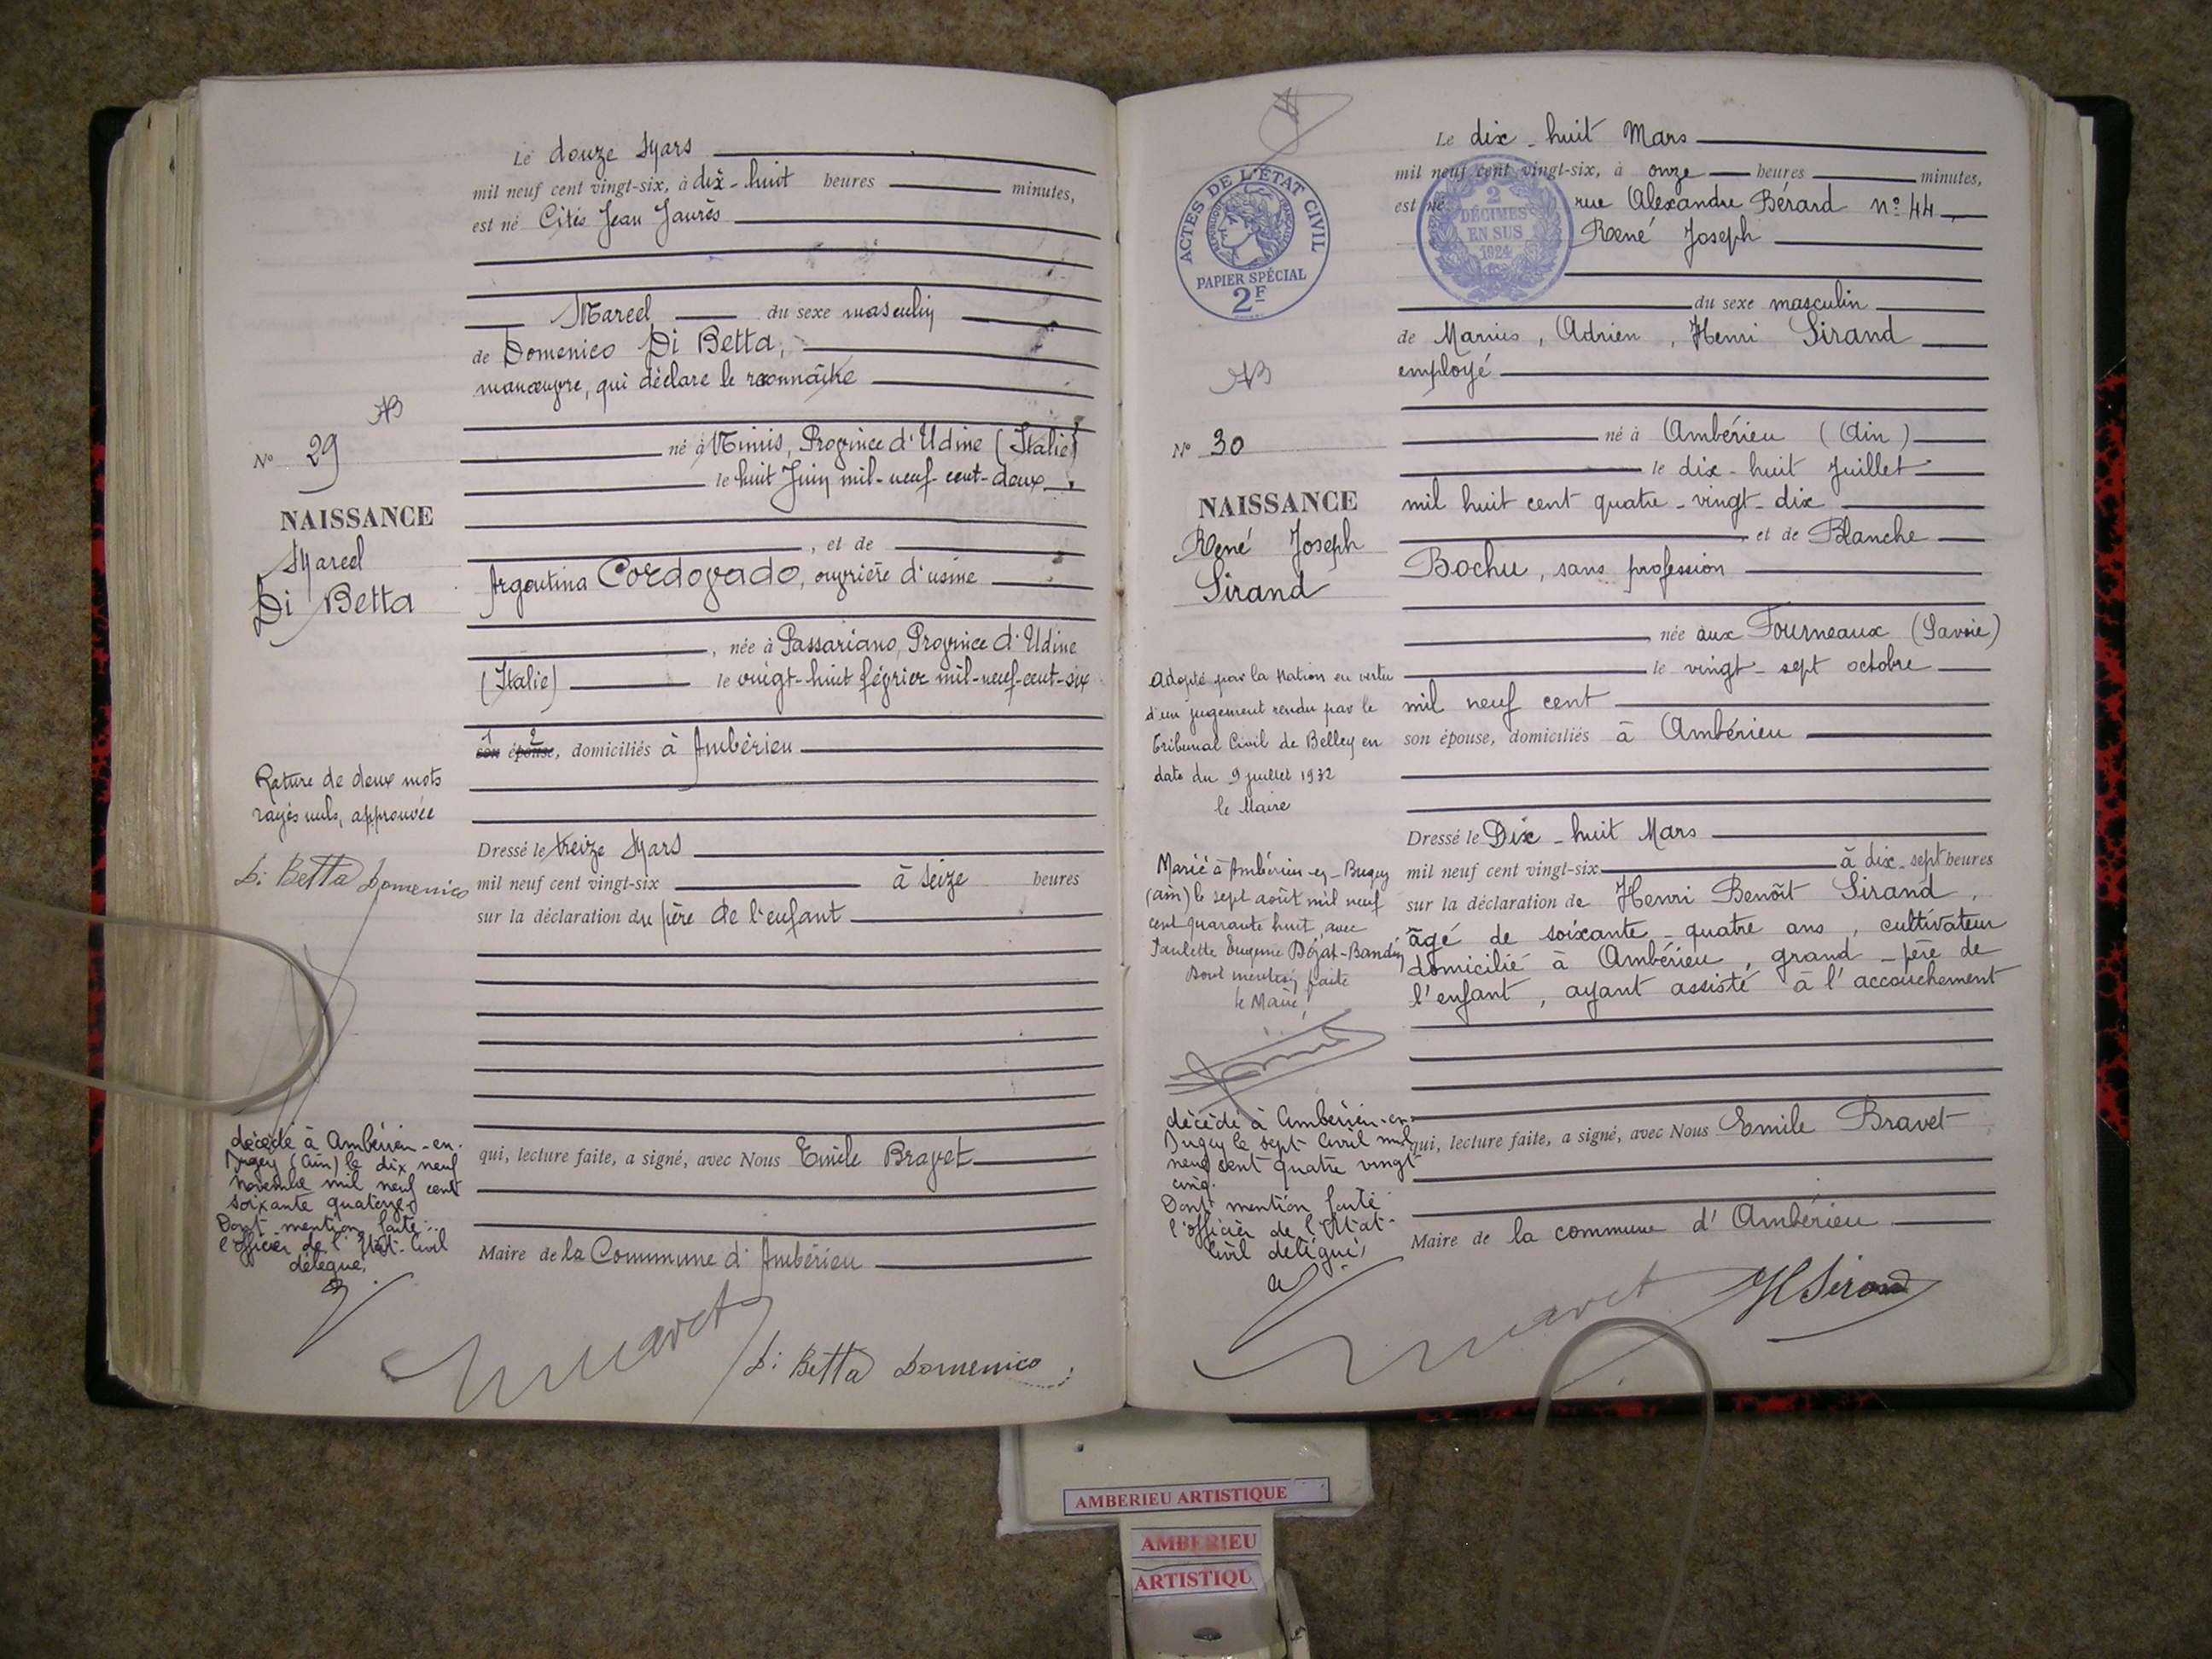 Le douze Mars
mil neuf cent vingt-six, à dix-huit heures minutes,
est né Cités Jean Jaurès
Marcel du sexe masculin
de Domenico Di Betta,
manœuvre, qui déclare le reconnaître
né à Nimis, Province d'Udine (Italie)
le huit Juin mil-neuf-cent-deux
, et de
Argentina Cordovado, ouvrière d'usine
, née à Passariano, Province d'Udine
(Italie) le vingt-huit février mil-neuf-cent-six
son épouse, domiciliés à Ambérieu
Dressé le treize Mars
mil neuf cent vingt-six à seize heures
sur la déclaration du père de l'enfant
qui, lecture faite, a signé, avec Nous Emile Bravet
Maire de la Commune d'Ambérieu
Di Betta Domenico
N° 29
NAISSANCE
Marcel
Di Betta
Rature de deux mots
rayés nuls, approuvée
Di Betta Domenico
décédé à Ambérieu-en-
Bugey (Ain) le dix neuf
novembre mil neuf cent
soixante quatorze
Dont mention faite
l'officier de l'Etat-Civil
délégué,
ACTES DE L'ÉTAT CIVIL
RÉPUBLIQUE FRANÇAISE
PAPIER SPÉCIAL
2F
2
DÉCIMES
EN SUS
1924
Le dix-huit Mars
mil neuf cent vingt-six, à onze heures minutes,
est né rue Alexandre Bérard n° 44,
René Joseph
du sexe masculin
de Marius, Adrien, Henri Sirand
employé
né à Ambérieu (Ain)
le dix-huit Juillet
mil huit cent quatre-vingt-dix
, et de Blanche
Bochu, sans profession
née aux Fourneaux (Savoie)
le vingt-sept octobre
mil neuf cent
son épouse, domiciliés à Ambérieu
Dressé le Dix-huit Mars
mil neuf cent vingt-six à dix-sept heures
sur la déclaration de Henri Benoît Sirand,
âgé de soixante-quatre ans, cultivateur
domicilié à Ambérieu, grand-père de
l'enfant, ayant assisté à l'accouchement
qui, lecture faite, a signé, avec Nous Emile Bravet
Maire de la commune d'Ambérieu
H Sirand
N° 30
NAISSANCE
René Joseph
Sirand
Adopté par la Nation en vertu
d'un jugement rendu par le
Tribunal Civil de Belley en
date du 9 juillet 1932
le Maire
Marié à Ambérieu-en-Bugey
(Ain) le sept août mil neuf
cent quarante huit, avec
Paulette Eugénie
Dont mention faite
le Maire,
décédé à Ambérieu-en-
Bugey le sept Avril mil
neuf cent quatre vingt
cinq.
Dont mention faite
l'officier de l'Etat-
Civil délégué,
AMBERIEU ARTISTIQUE
AMBERIEU
ARTISTIQU